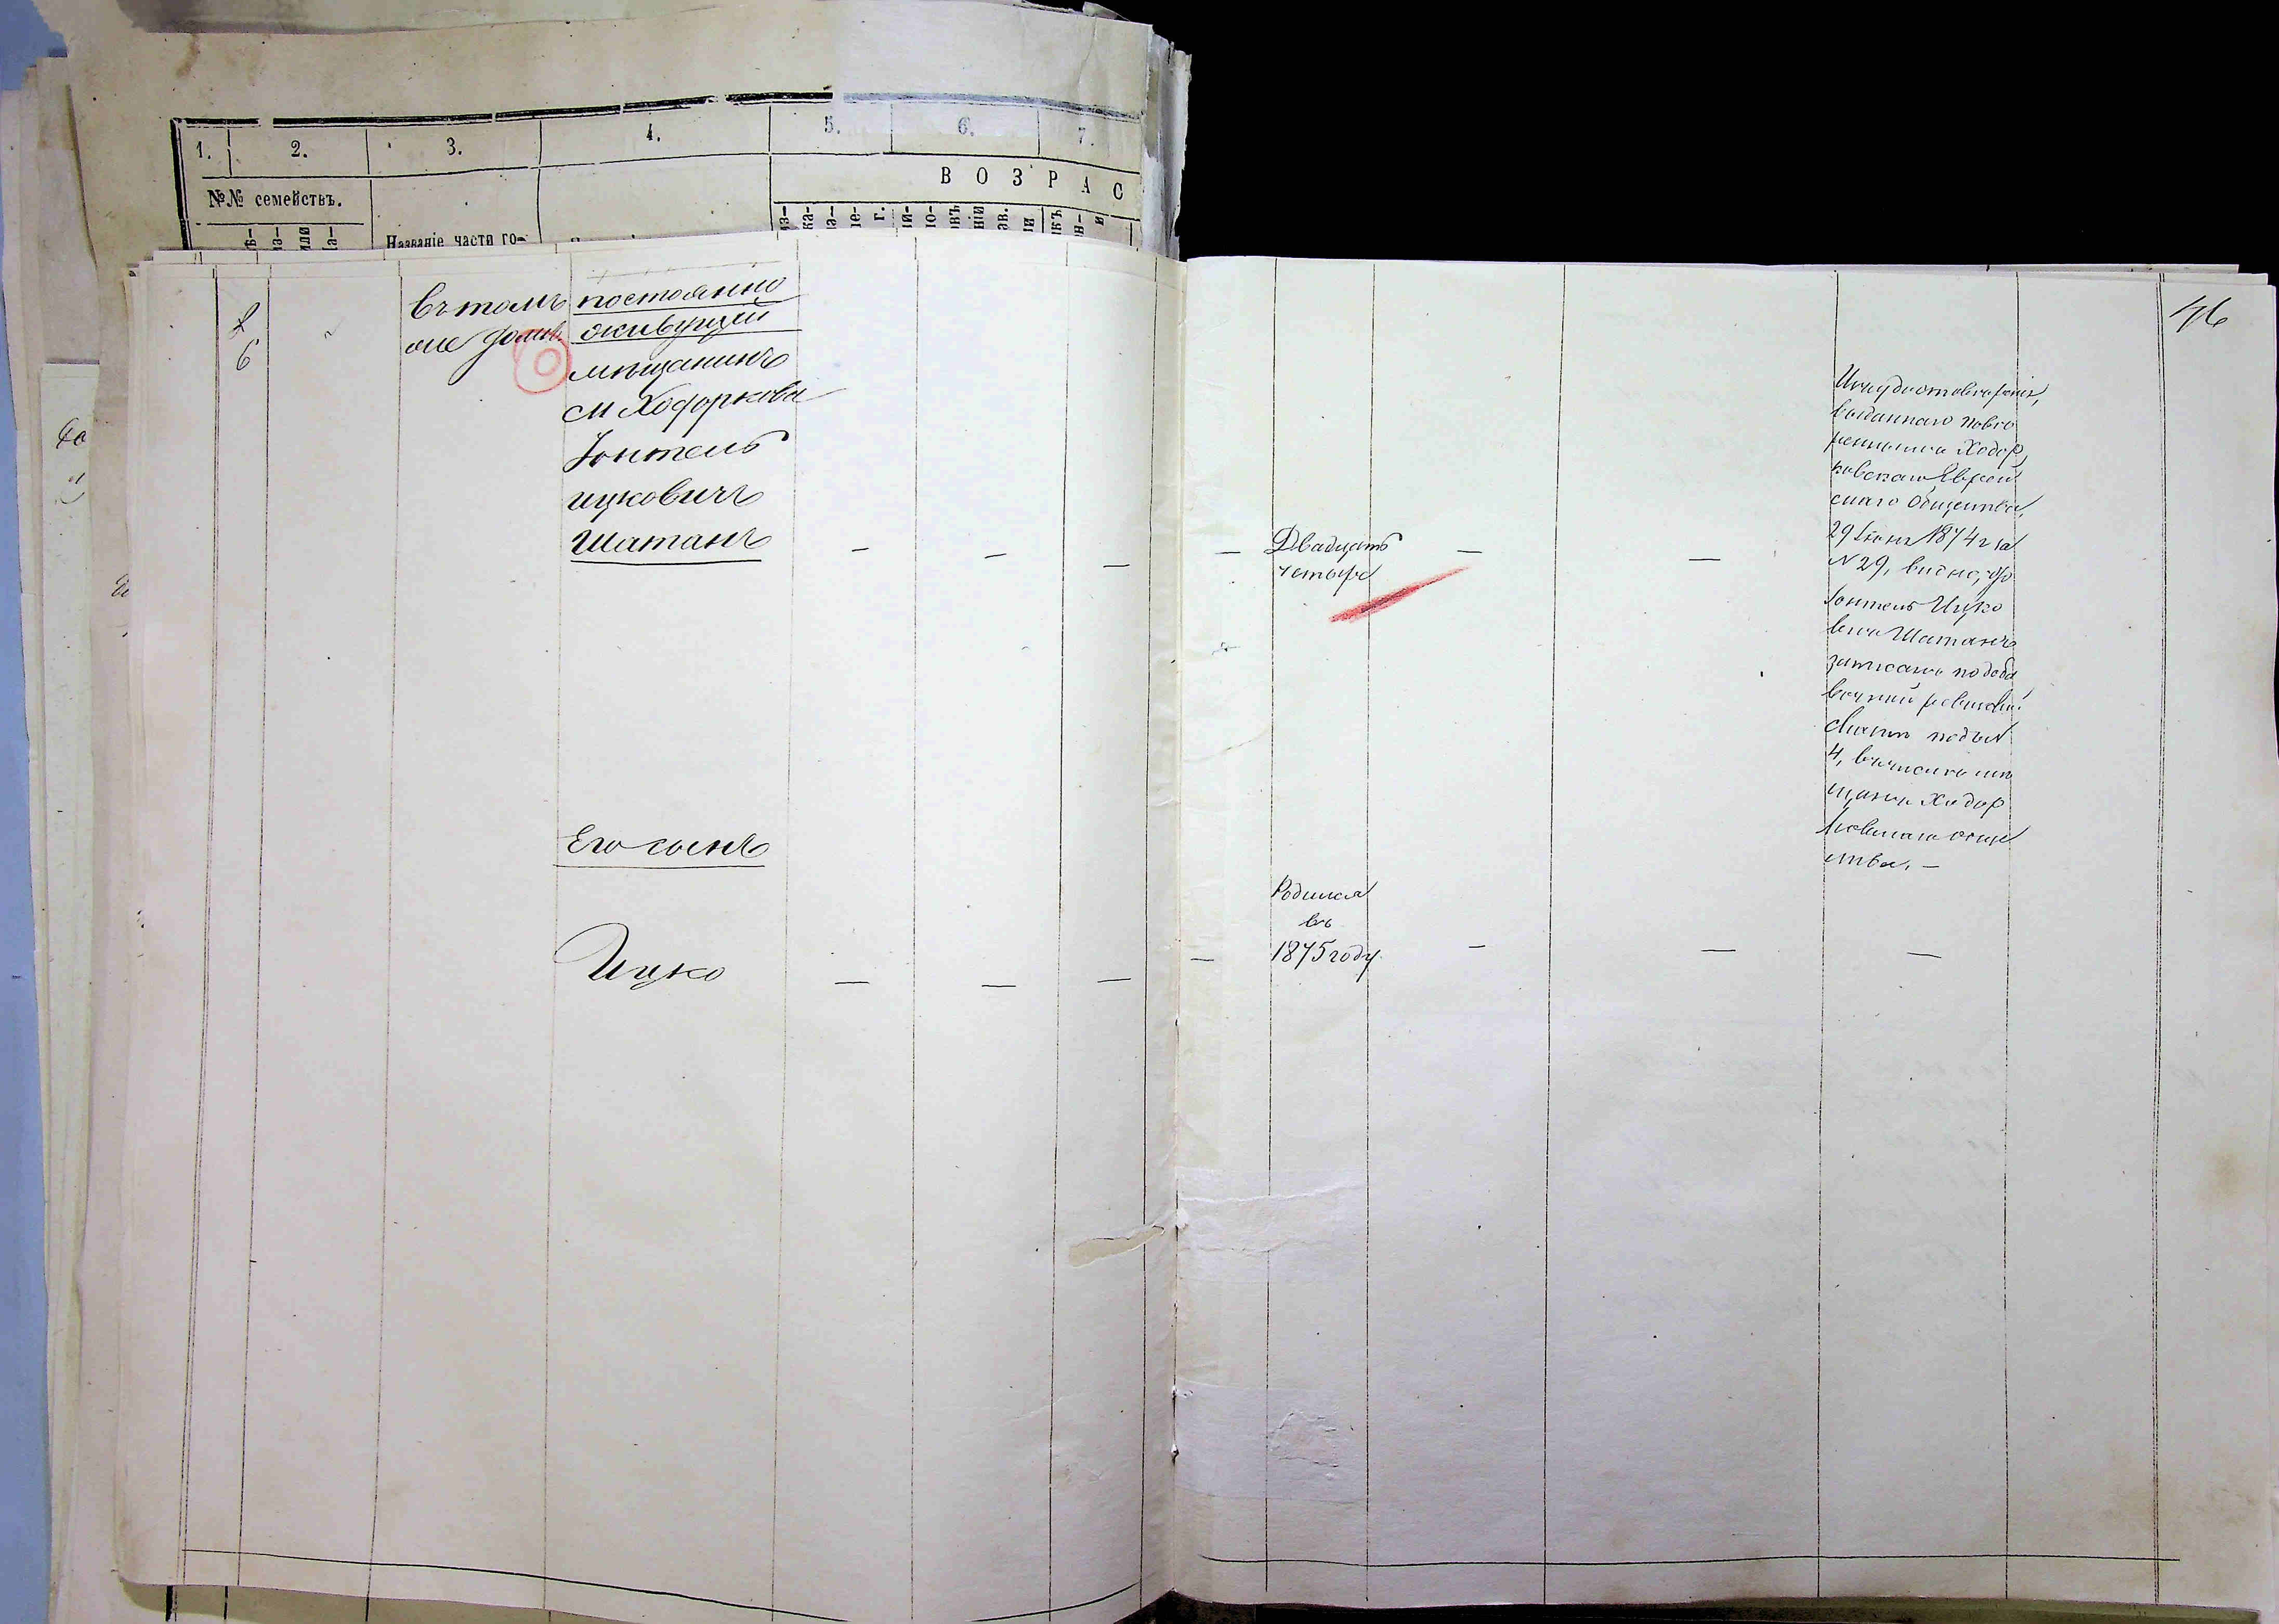 1. 2. 3. 4. 5. 6. 7.
В О З Р А С
№№ семействъ.
Названіе части го-
46
6
въ томъ
же домѣ.
постоянно
живущій
мѣщанинъ
м Ходоркова
Іонтель
ицковичъ
Шатанъ
Двадцать
четыре
Изъ удостовѣренія,
выданнаго повѣ
реннымъ Ходор
ковскаго Еврей
скаго Общества,
29 Іюня 1874 г за
№ 29, видно, что
Іонтель Ицко
вичъ Шатанъ
записанъ по доба
вочной ревизской
сказкѣ подъ №
4, въ числѣ мѣ
щанъ Ходор
ковскаго обще
ства. —
Его сынъ
Ицко
Родился
въ
1875 году.